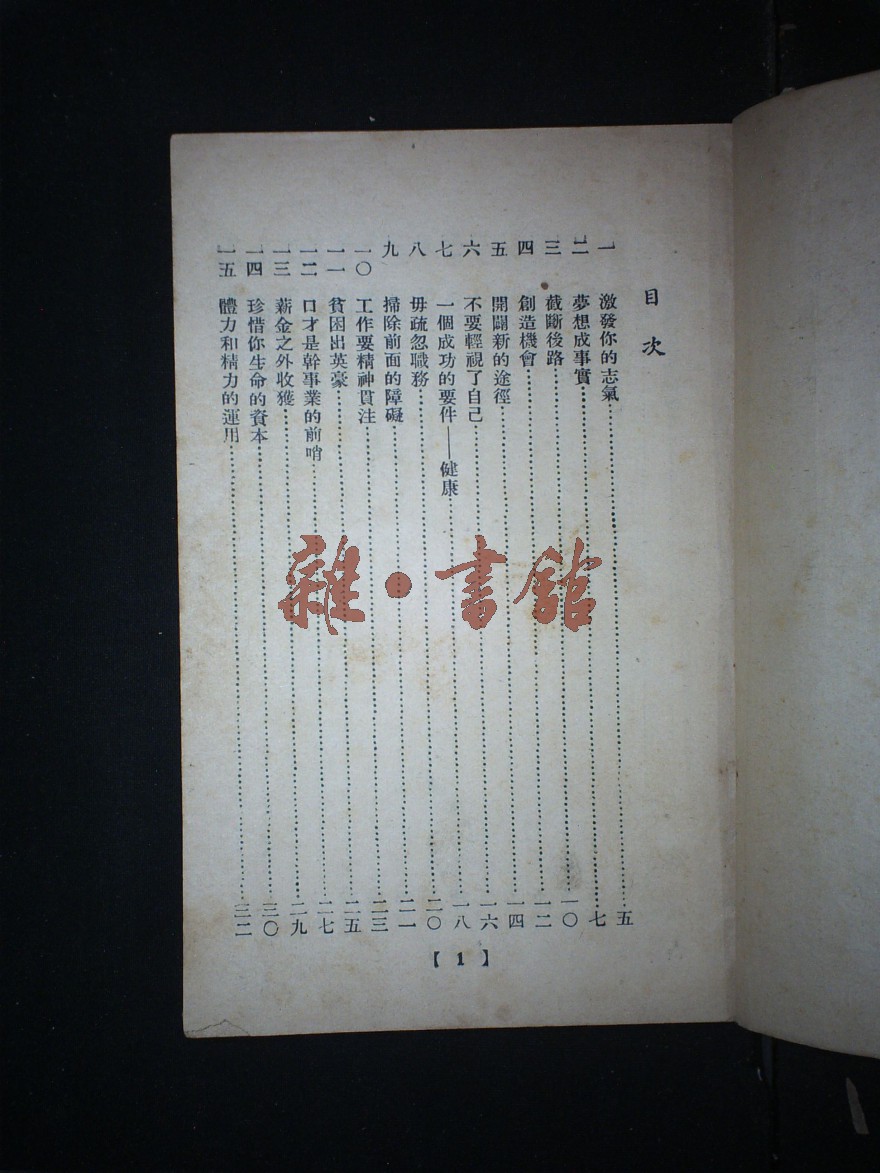 目次
一 激發你的志氣 五
二 夢想成事實 七
三 截斷後路 一〇
四 創造機會 一二
五 開闢新的途徑 一四
六 不要輕視了自己 一六
七 一個成功的要件——健康 一八
八 毋疏忽職務 二〇
九 掃除前面的障礙 二一
一〇 工作要精神貫注 二三
一一 貧困出英豪 二五
一二 口才是幹事業的前哨 二七
一三 薪金之外收獲 二九
一四 珍惜你生命的資本 三〇
一五 體力和精力的運用 三二
【1】
雜·書館